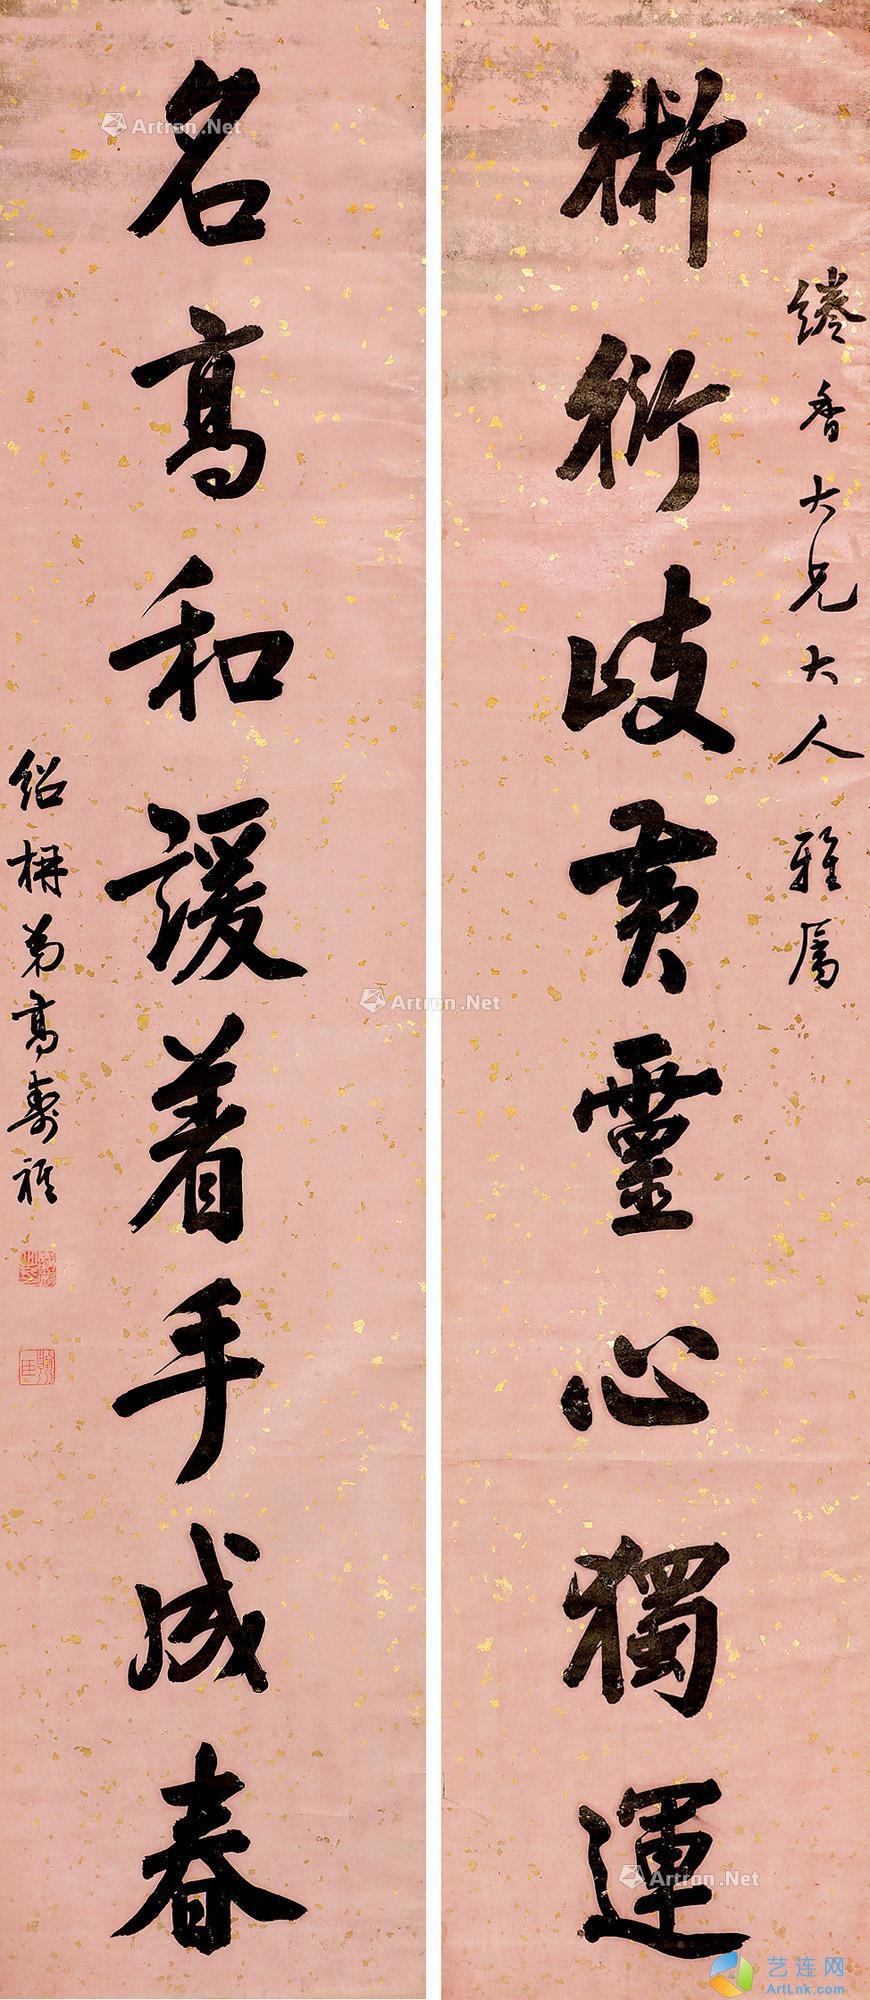 繙香大兄大人雅屬
術衍歧黃靈心獨運
名高和緩着手成春
紹栴弟高壽祺
Artron.Net
Artron.Net
Artron.Net
艺连网
ArtLnk.com